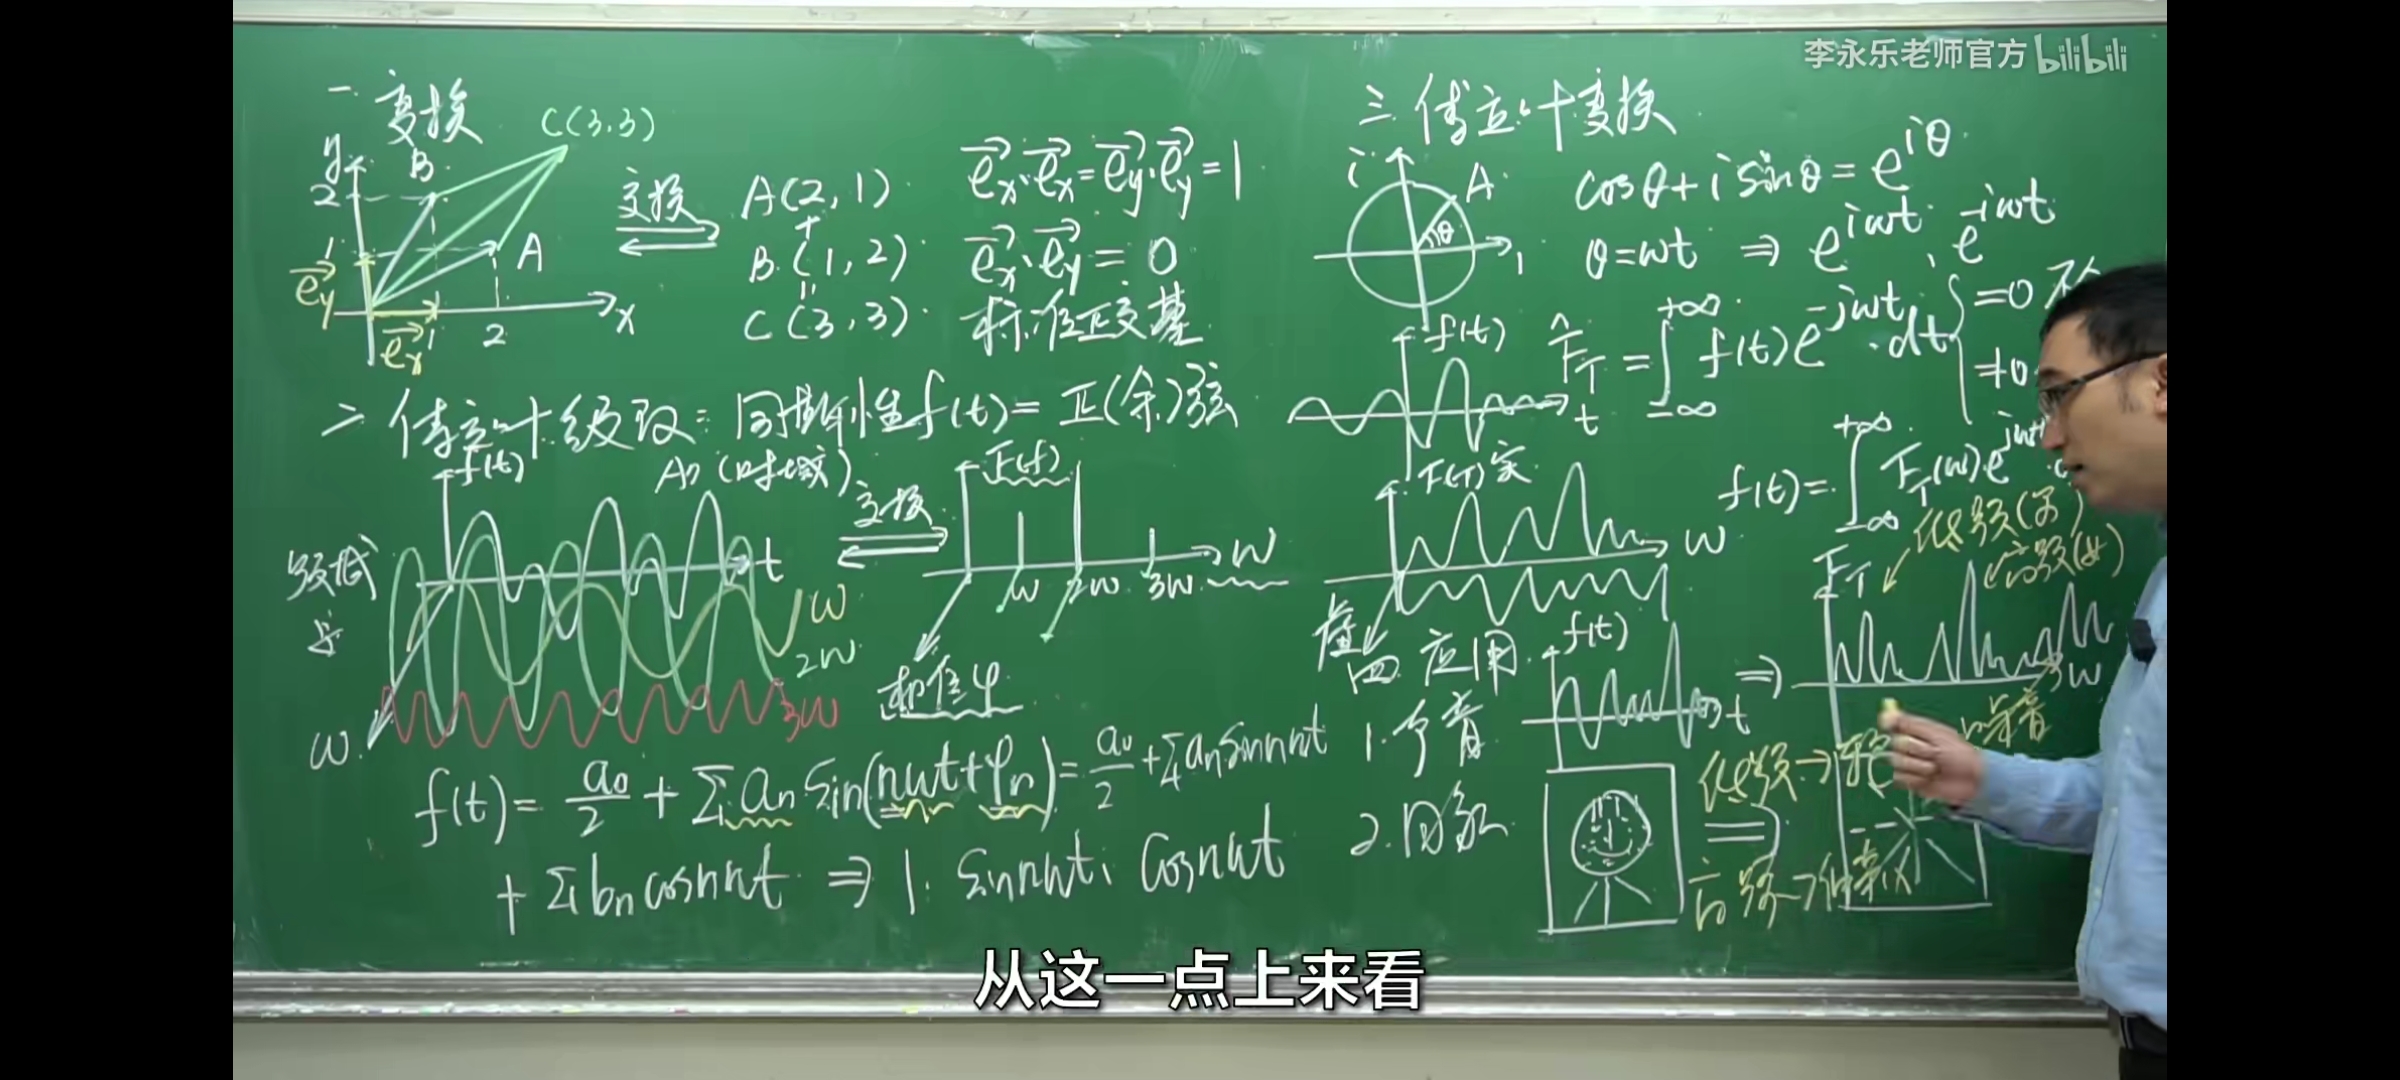 李永乐老师官方 bilibili
一. 变换
y
2
B
C(3,3)
1
A
e⃗y
e⃗x
1
2
x
变换
A(2,1)
+
B(1,2)
C(3,3)
e⃗x·e⃗x=e⃗y·e⃗y=1
e⃗x·e⃗y=0
标准正交基
二 傅立叶级数: 周期性f(t)=正(余)弦
f(t)
An (时域)
t
ω
2ω
3ω
ω
变换
F(f)
ω
2ω
3ω
ω
相位φ
f(t)= a0/2 + Σ an sin(nωt+φn)= a0/2 +Σ an sin nωt
+ Σ bn cos nωt ⇒ 1. sin nωt, cos nωt
三 傅立叶变换
i
A
θ
1
cosθ+i sinθ=e^iθ
θ=ωt ⇒ e^iωt, e^-iωt
f(t)
t
F_T=∫_-∞^+∞ f(t)e^-jωt·dt
=0 不
≠0
F(T) 实
ω
虚
f(t)=∫_-∞^+∞ F_T(ω)e^jωt
四 应用
1. 声音
f(t)
t
⇒
F_T
低频(男)
高频(女)
ω
噪音
2. 图象
低频→轮
高频→细节
从这一点上来看